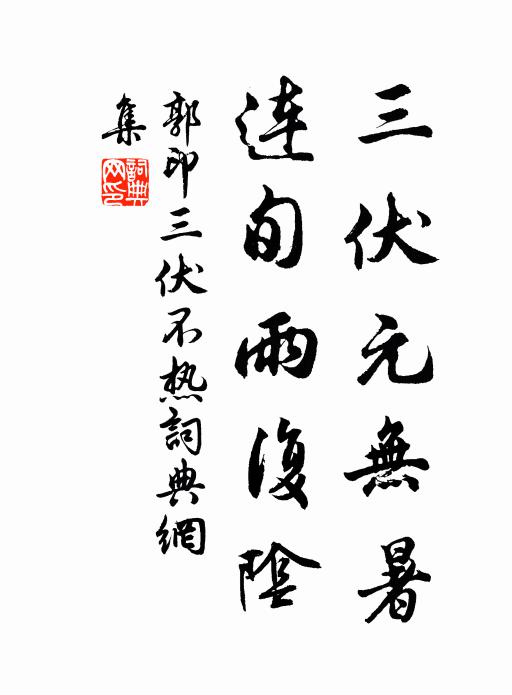 三伏元無暑
連旬雨復陰
郭印三伏不热詞典網
集
詞典網印